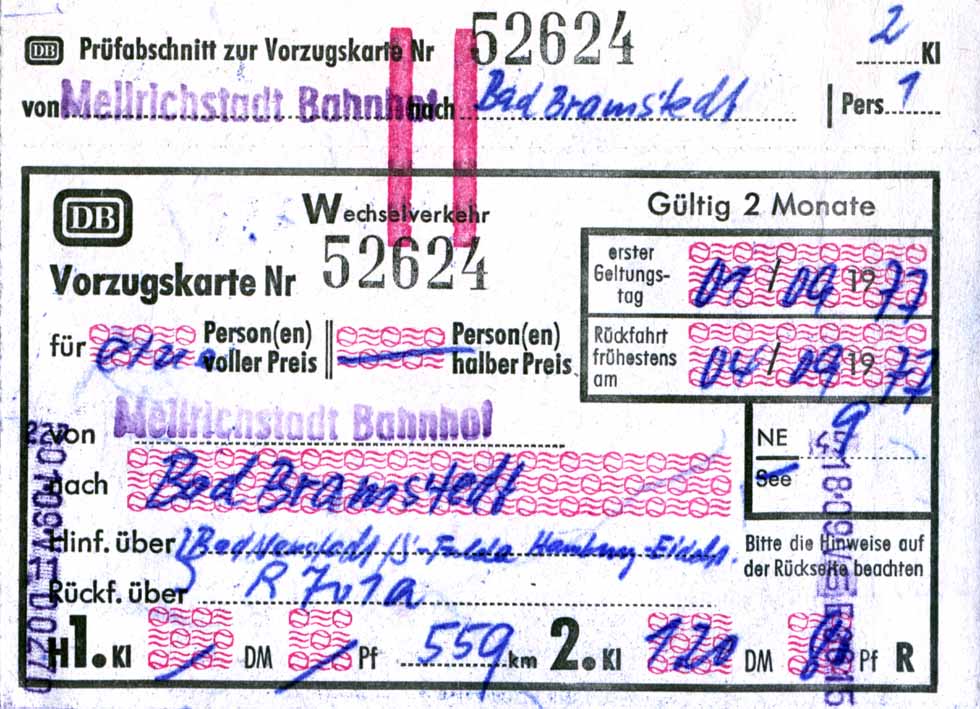 DB Prüfabschnitt zur Vorzugskarte Nr 52624 2 Kl
von Mellrichstadt Bahnhof nach Bad Bramstedt Pers. 1
DB Wechselverkehr Gültig 2 Monate
Vorzugskarte Nr 52624
erster Geltungs-tag 01/09 1977
für Person(en) voller Preis Person(en) halber Preis
Rückfahrt frühestens am 04/09 1977
von Mellrichstadt Bahnhof
NE 9
See
nach Bad Bramstedt
Hinf. über Fulda Hamburg-Eidelst.
Rückf. über
Bitte die Hinweise auf
der Rückseite beachten
H 1. Kl DM Pf 559 km 2. Kl 120 DM Pf R